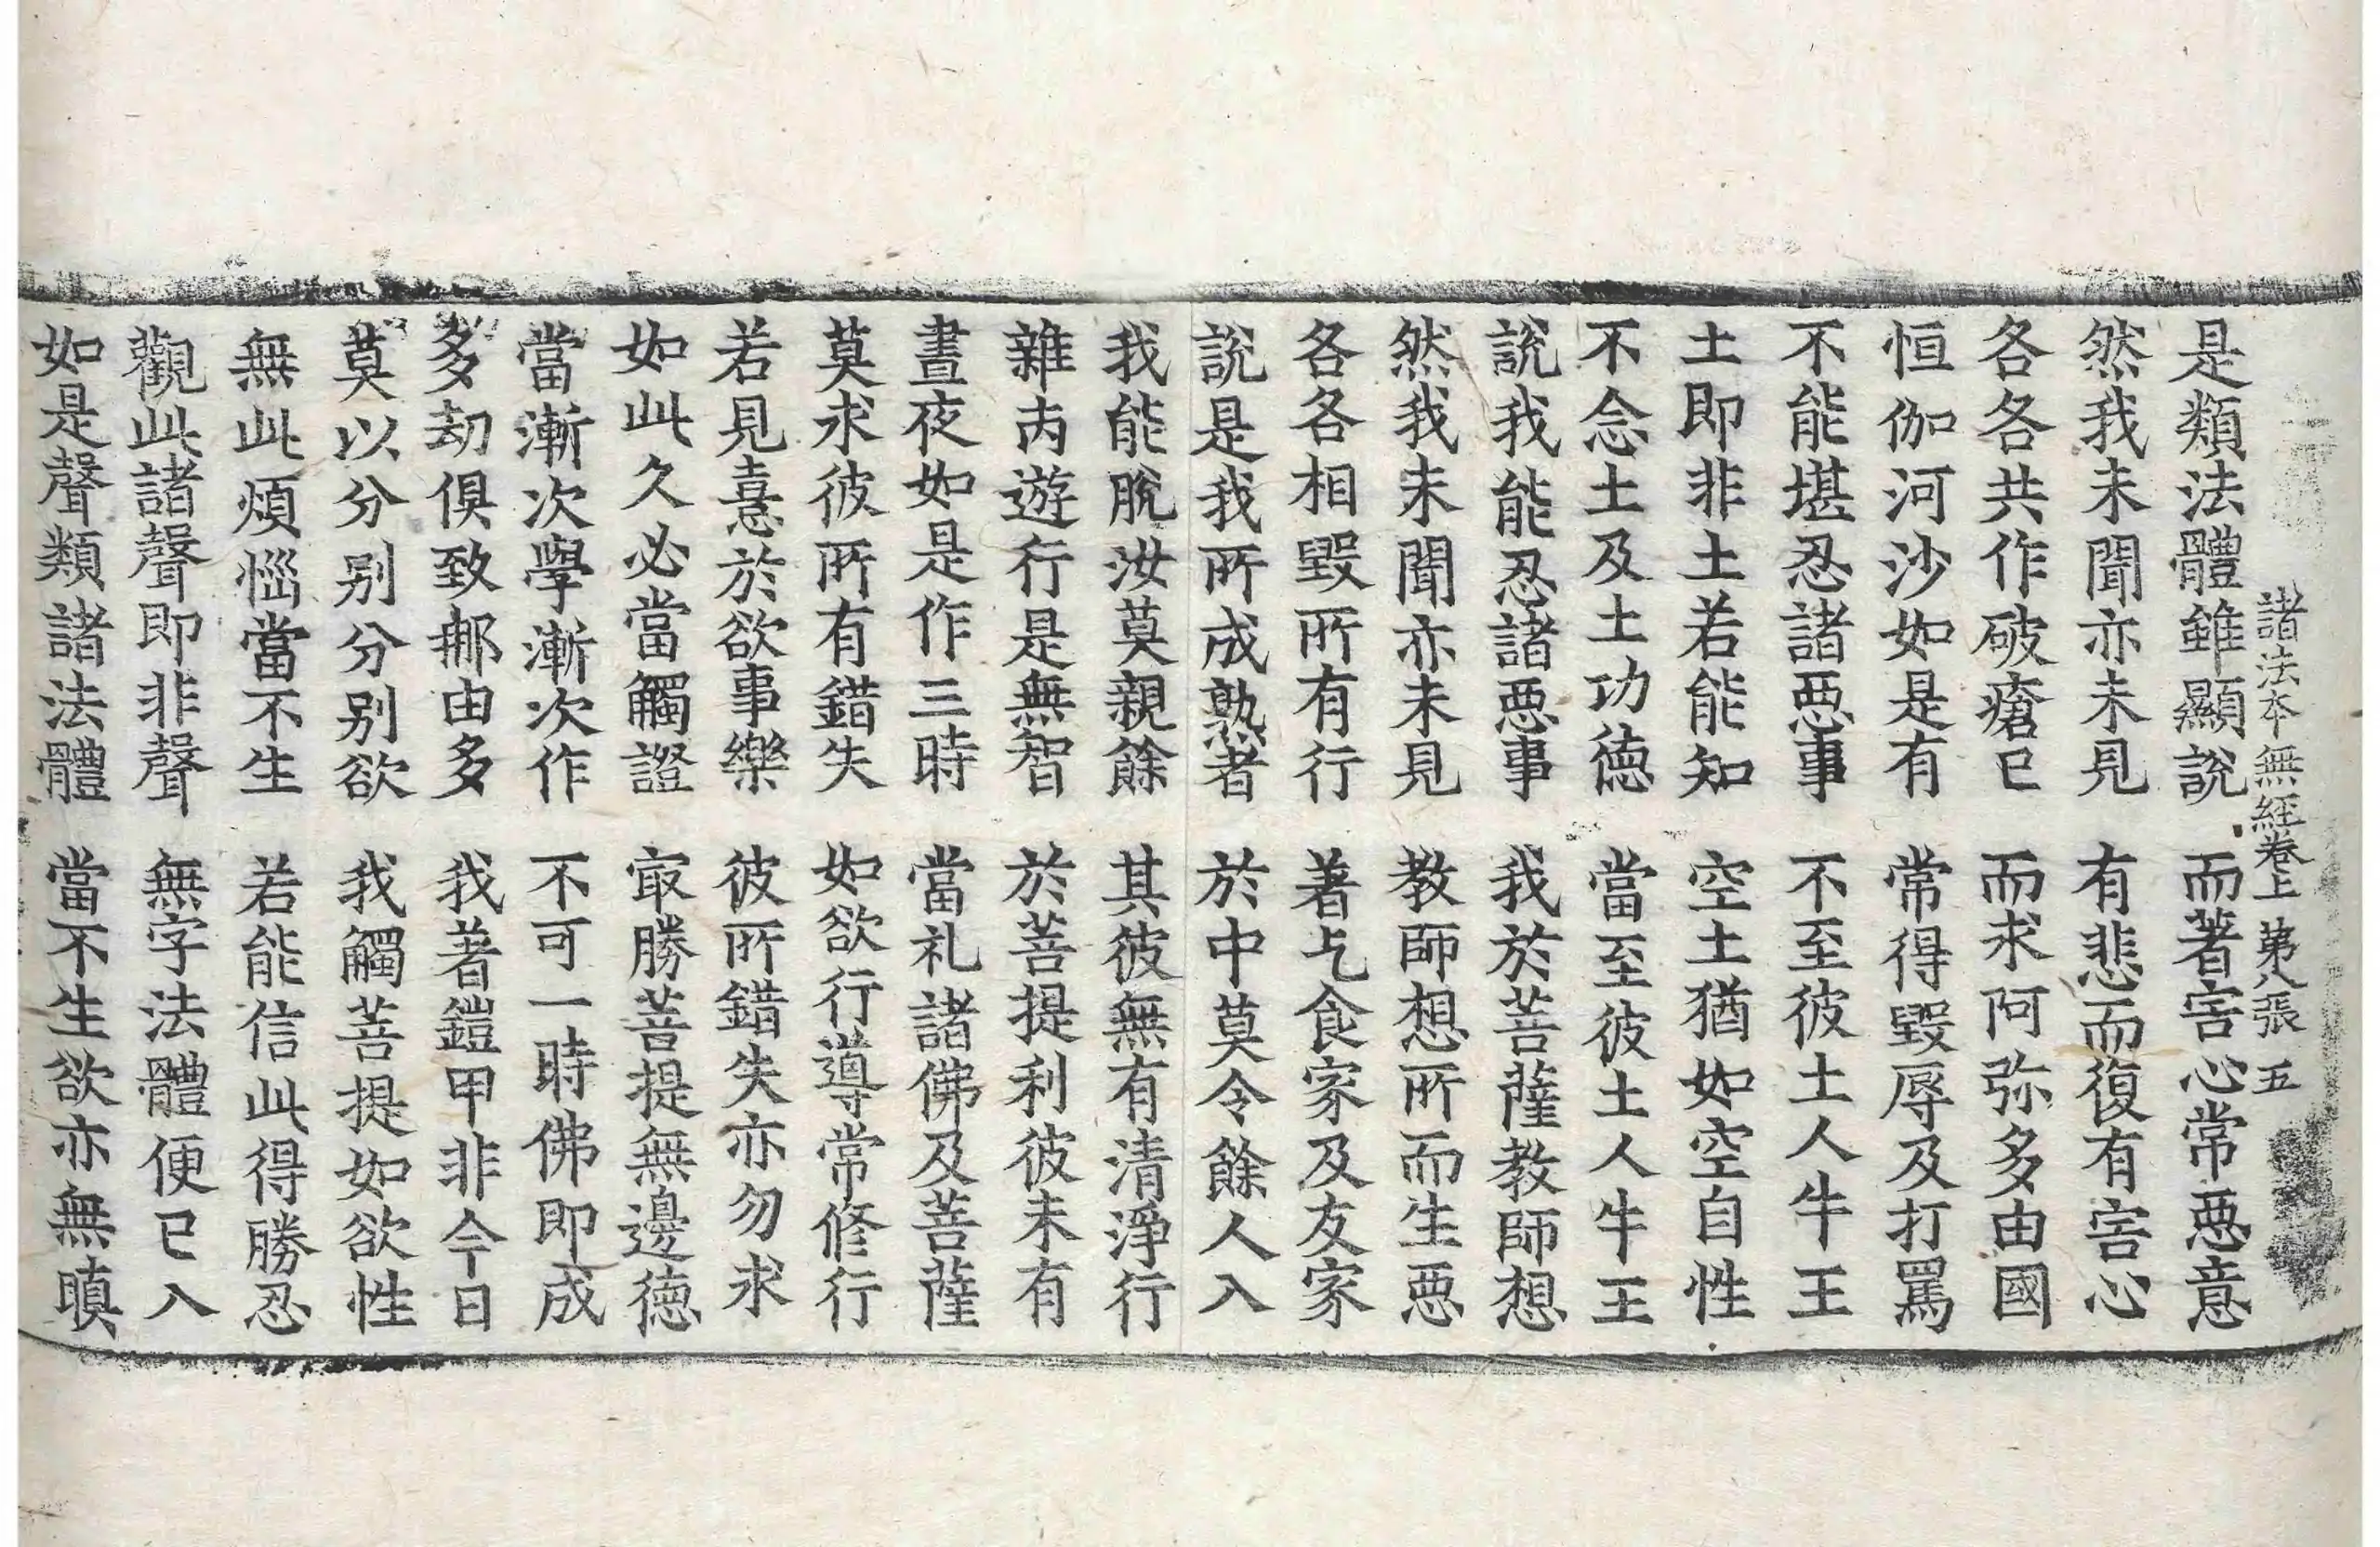 諸法本無經卷上 第八張 五
是類法體雖顯說 而著害心常惡意
然我未聞亦未見 有悲而復有害心
各各共作破瘡已 而求阿弥多由國
恒伽河沙如是有 常得毀辱及打罵
不能堪忍諸惡事 不至彼土人牛王
土即非土若能知 空土猶如空自性
不念土及土功德 當至彼土人牛王
說我能忍諸惡事 我於菩薩教師想
然我未聞亦未見 教師想所而生惡
各各相毀所有行 著乞食家及友家
說是我所成熟者 於中莫令餘人入
我能脫汝莫親餘 其彼無有清淨行
雜丙遊行是無智 於菩提利彼未有
晝夜如是作三時 當礼諸佛及菩薩
莫求彼所有錯失 如欲行導常修行
若見憙於欲事樂 彼所錯失亦勿求
如此久必當觸證 㝡勝菩提無邊德
當漸次學漸次作 不可一時佛即成
多劫俱致那由多 我著鎧甲非今日
莫以分別分別欲 我觸菩提如欲性
無此煩惱當不生 若能信此得勝忍
觀此諸聲即非聲 無字法體便已入
如是聲類諸法體 當不生欲亦無瞋